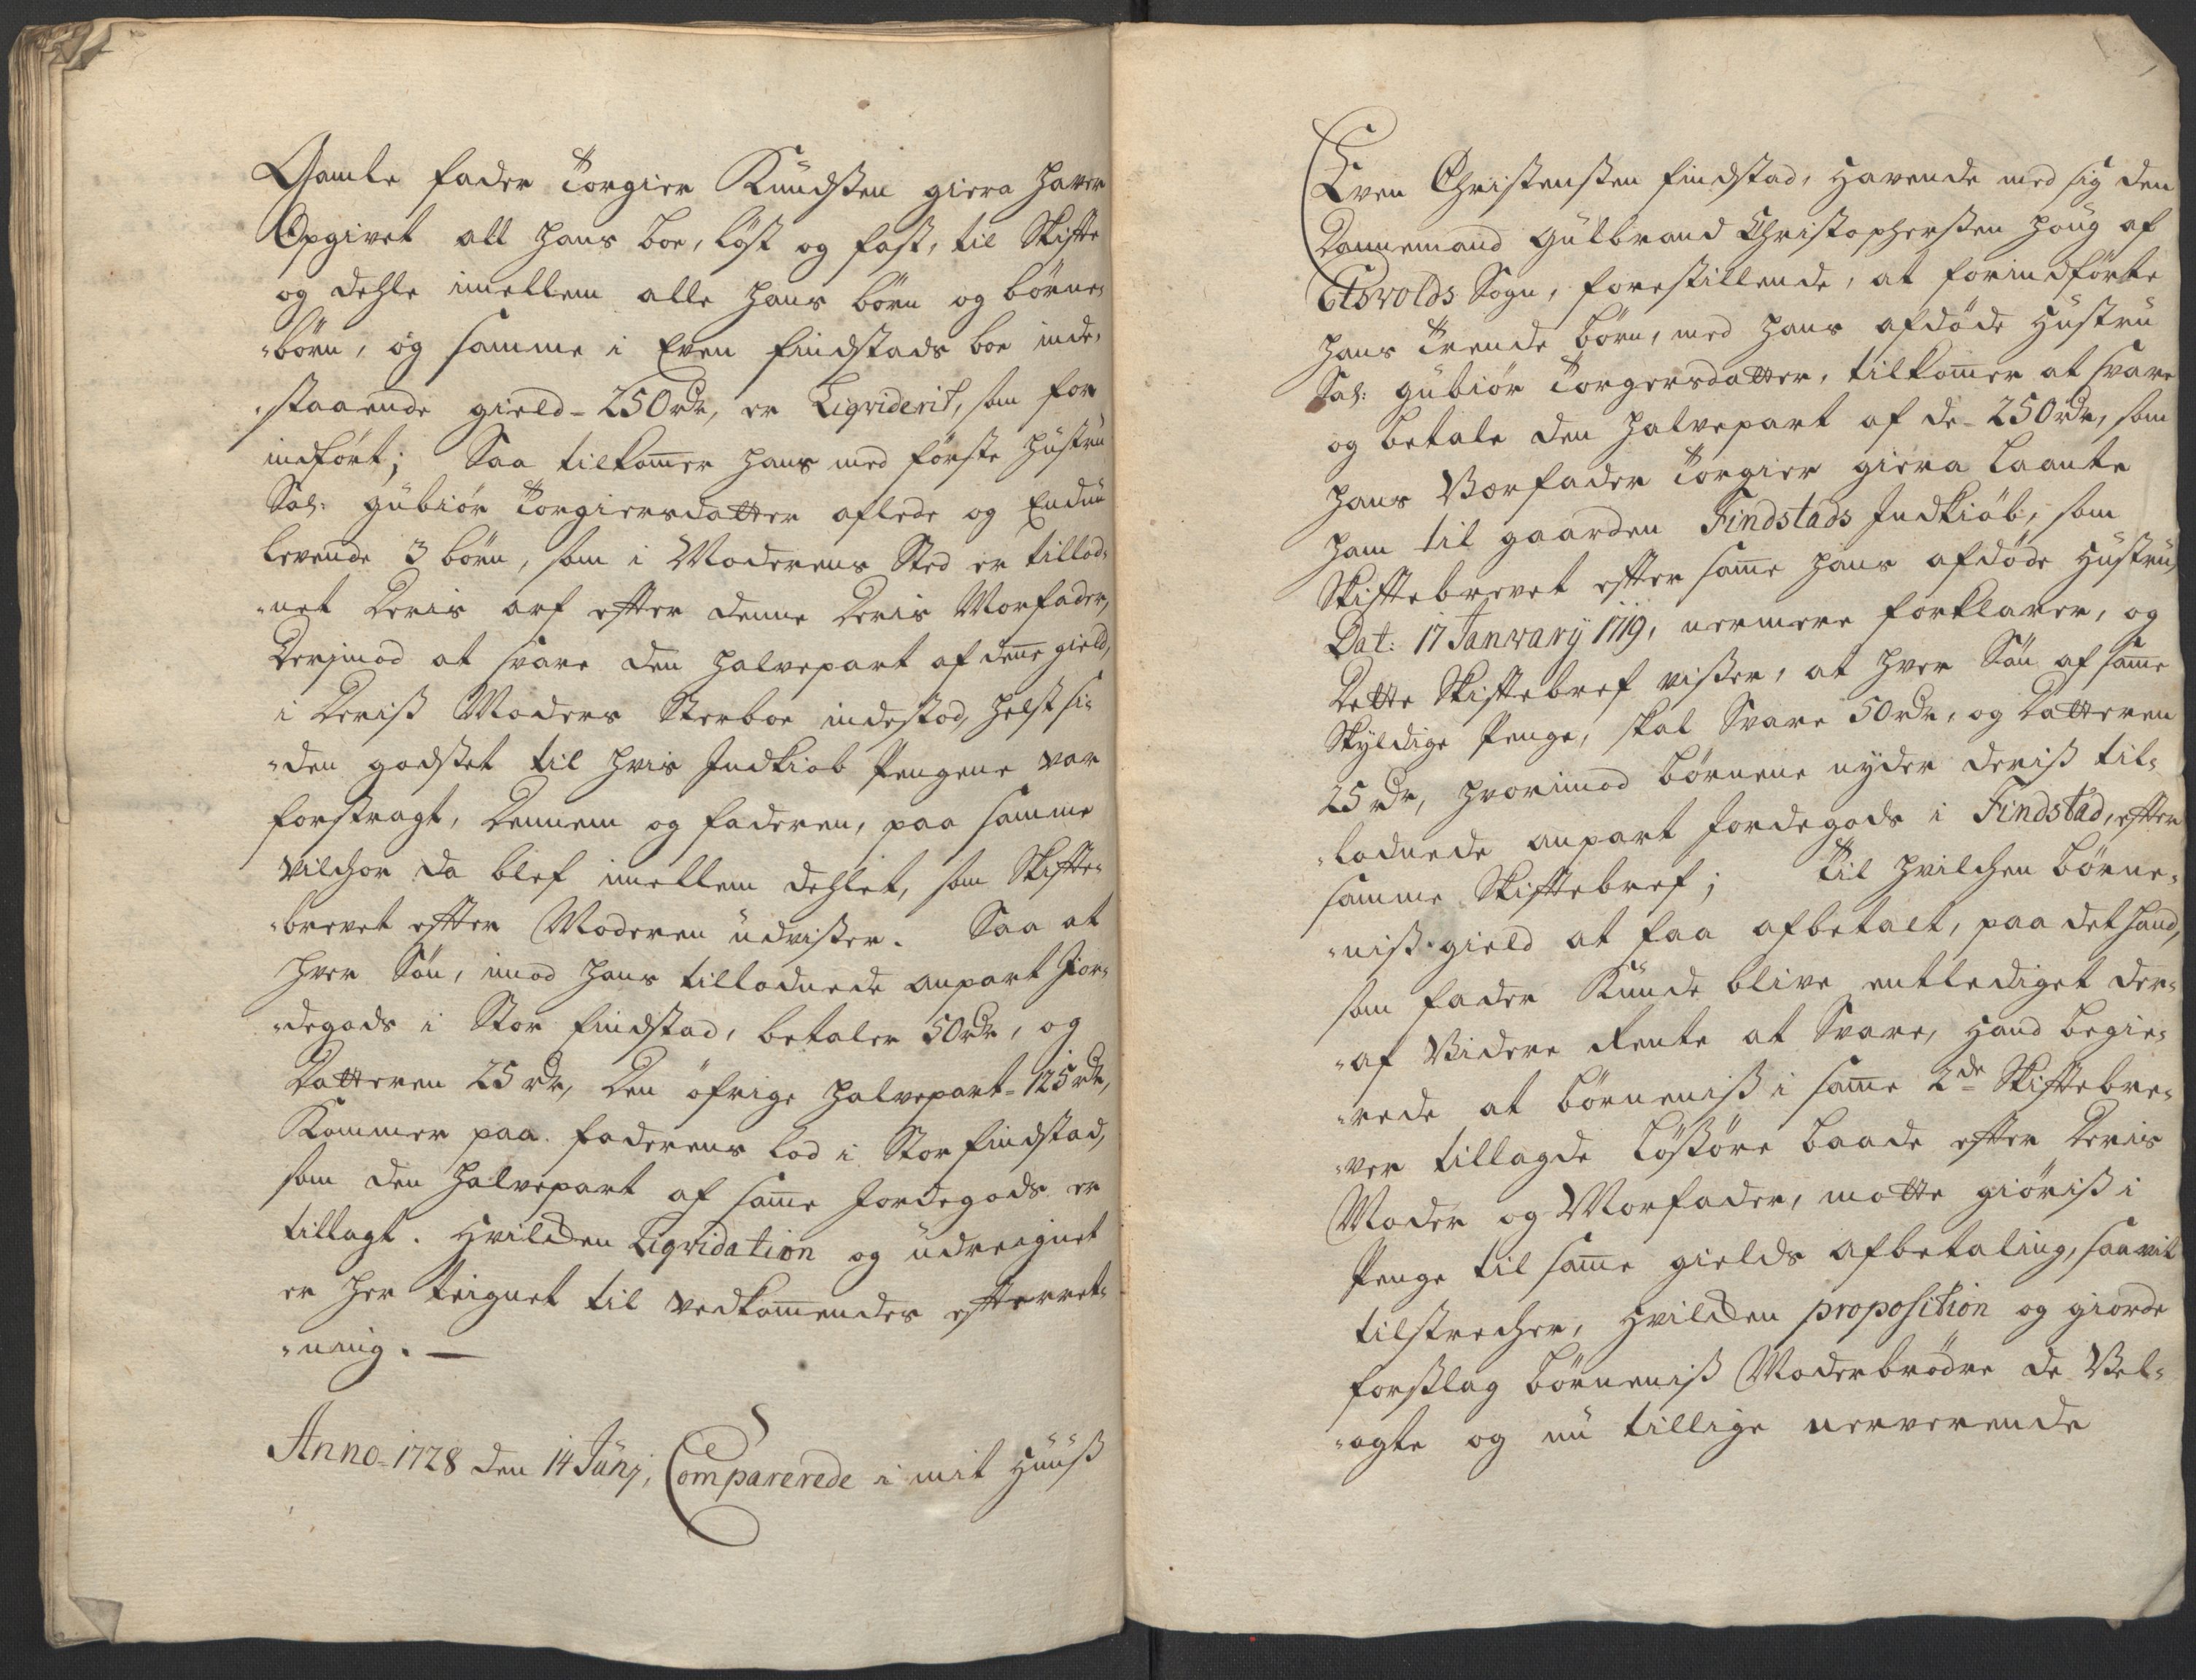 Gamle fader Torgier Knudsßen giera haver
Opgivet all hans boe, löst og fast, til Skifte
og dehle imellem alle hans börn og börne-
-börn, og samme i Even Findstads boe inde-
-staaende gield - 250 rdr, er Liqviderit, som for
indfört; Saa tilkom̄er hans med förste hustru
Sal: Gubiör Torgiersdatter aflede og Endnu
levende 3 börn, som i Moderens Sted er tillod-
-net Deris arf efter denne Deris Morfader,
Derimod at svare den halvepart af den̄e gield,
i Deriß Moders Sterboe indestod, helst si-
-den godset til hvis Indkiöb Pengene var
forstragt, Dennem og faderen, paa samme
vilchor da blef imellem dehlet, som Skifte-
-brevet efter Moderen udvißer. Saa at
hver Sön, imod hans tillodnede anpart Jor-
-degods i Stor Findstad, betaler 50 rdr, og
Datteren 25 rdr, den öfrige halvepart - 125 rdr,
Kommer paa faderens lod i Stor Findstad,
som den halvepart af sam̄e Jordegods er
tillagt. Hvilchen Liqvidation og udreignet
er her teignet til vedkom̄endes efterret-
-ning. —
Anno - 1728 den 14 Junj, Comparerede i mit Huuß
Even Christensßen Findstad, havende med sig den
Dannemand Gulbrand Christophersßen Houg af
Eidsvolds Sogn, forestillende, at forindförte
hans Trende börn, med hans afdöde Hustru
Sal: Gubiör Torgersdatter, tilkom̄er at svare
og betale den halvepart af de - 250 rdr, som
hans Verfader Torgier giera laante
ham til gaarden Findstads Indkiöb, som
Skiftebrevet efter sam̄e hans afdöde Hustru
Dat: 17 Janvarij 1719, nermere forklarer, og
Dette Skiftebref vißer, at hver Sön af sam̄e
Skyldige Penge, skal Svare 50 rdr, og Datteren
25 rdr, hvorimod börnene nyder deriß til-
-lodnede anpart Jordegods i Findstad, efter
samme Skiftebref; Til hvilchen börne-
-niß gield at faa afbetalt, paa det hand,
som fader Kunde blive entlediget der-
-af Videre Rente at Svare, Hand begie-
-rede at börneniß i sam̄e 2de Skiftebre-
-ver tillagde lößöre baade efter Deris
Moder og Morfader, motte giöriß i
Penge til sam̄e gields afbetaling, saavit
tilstrecher, Hvilchen proposition og giorde
forslag börneniß Moderbrödre de Vel-
-agte og nu tillige nerverende